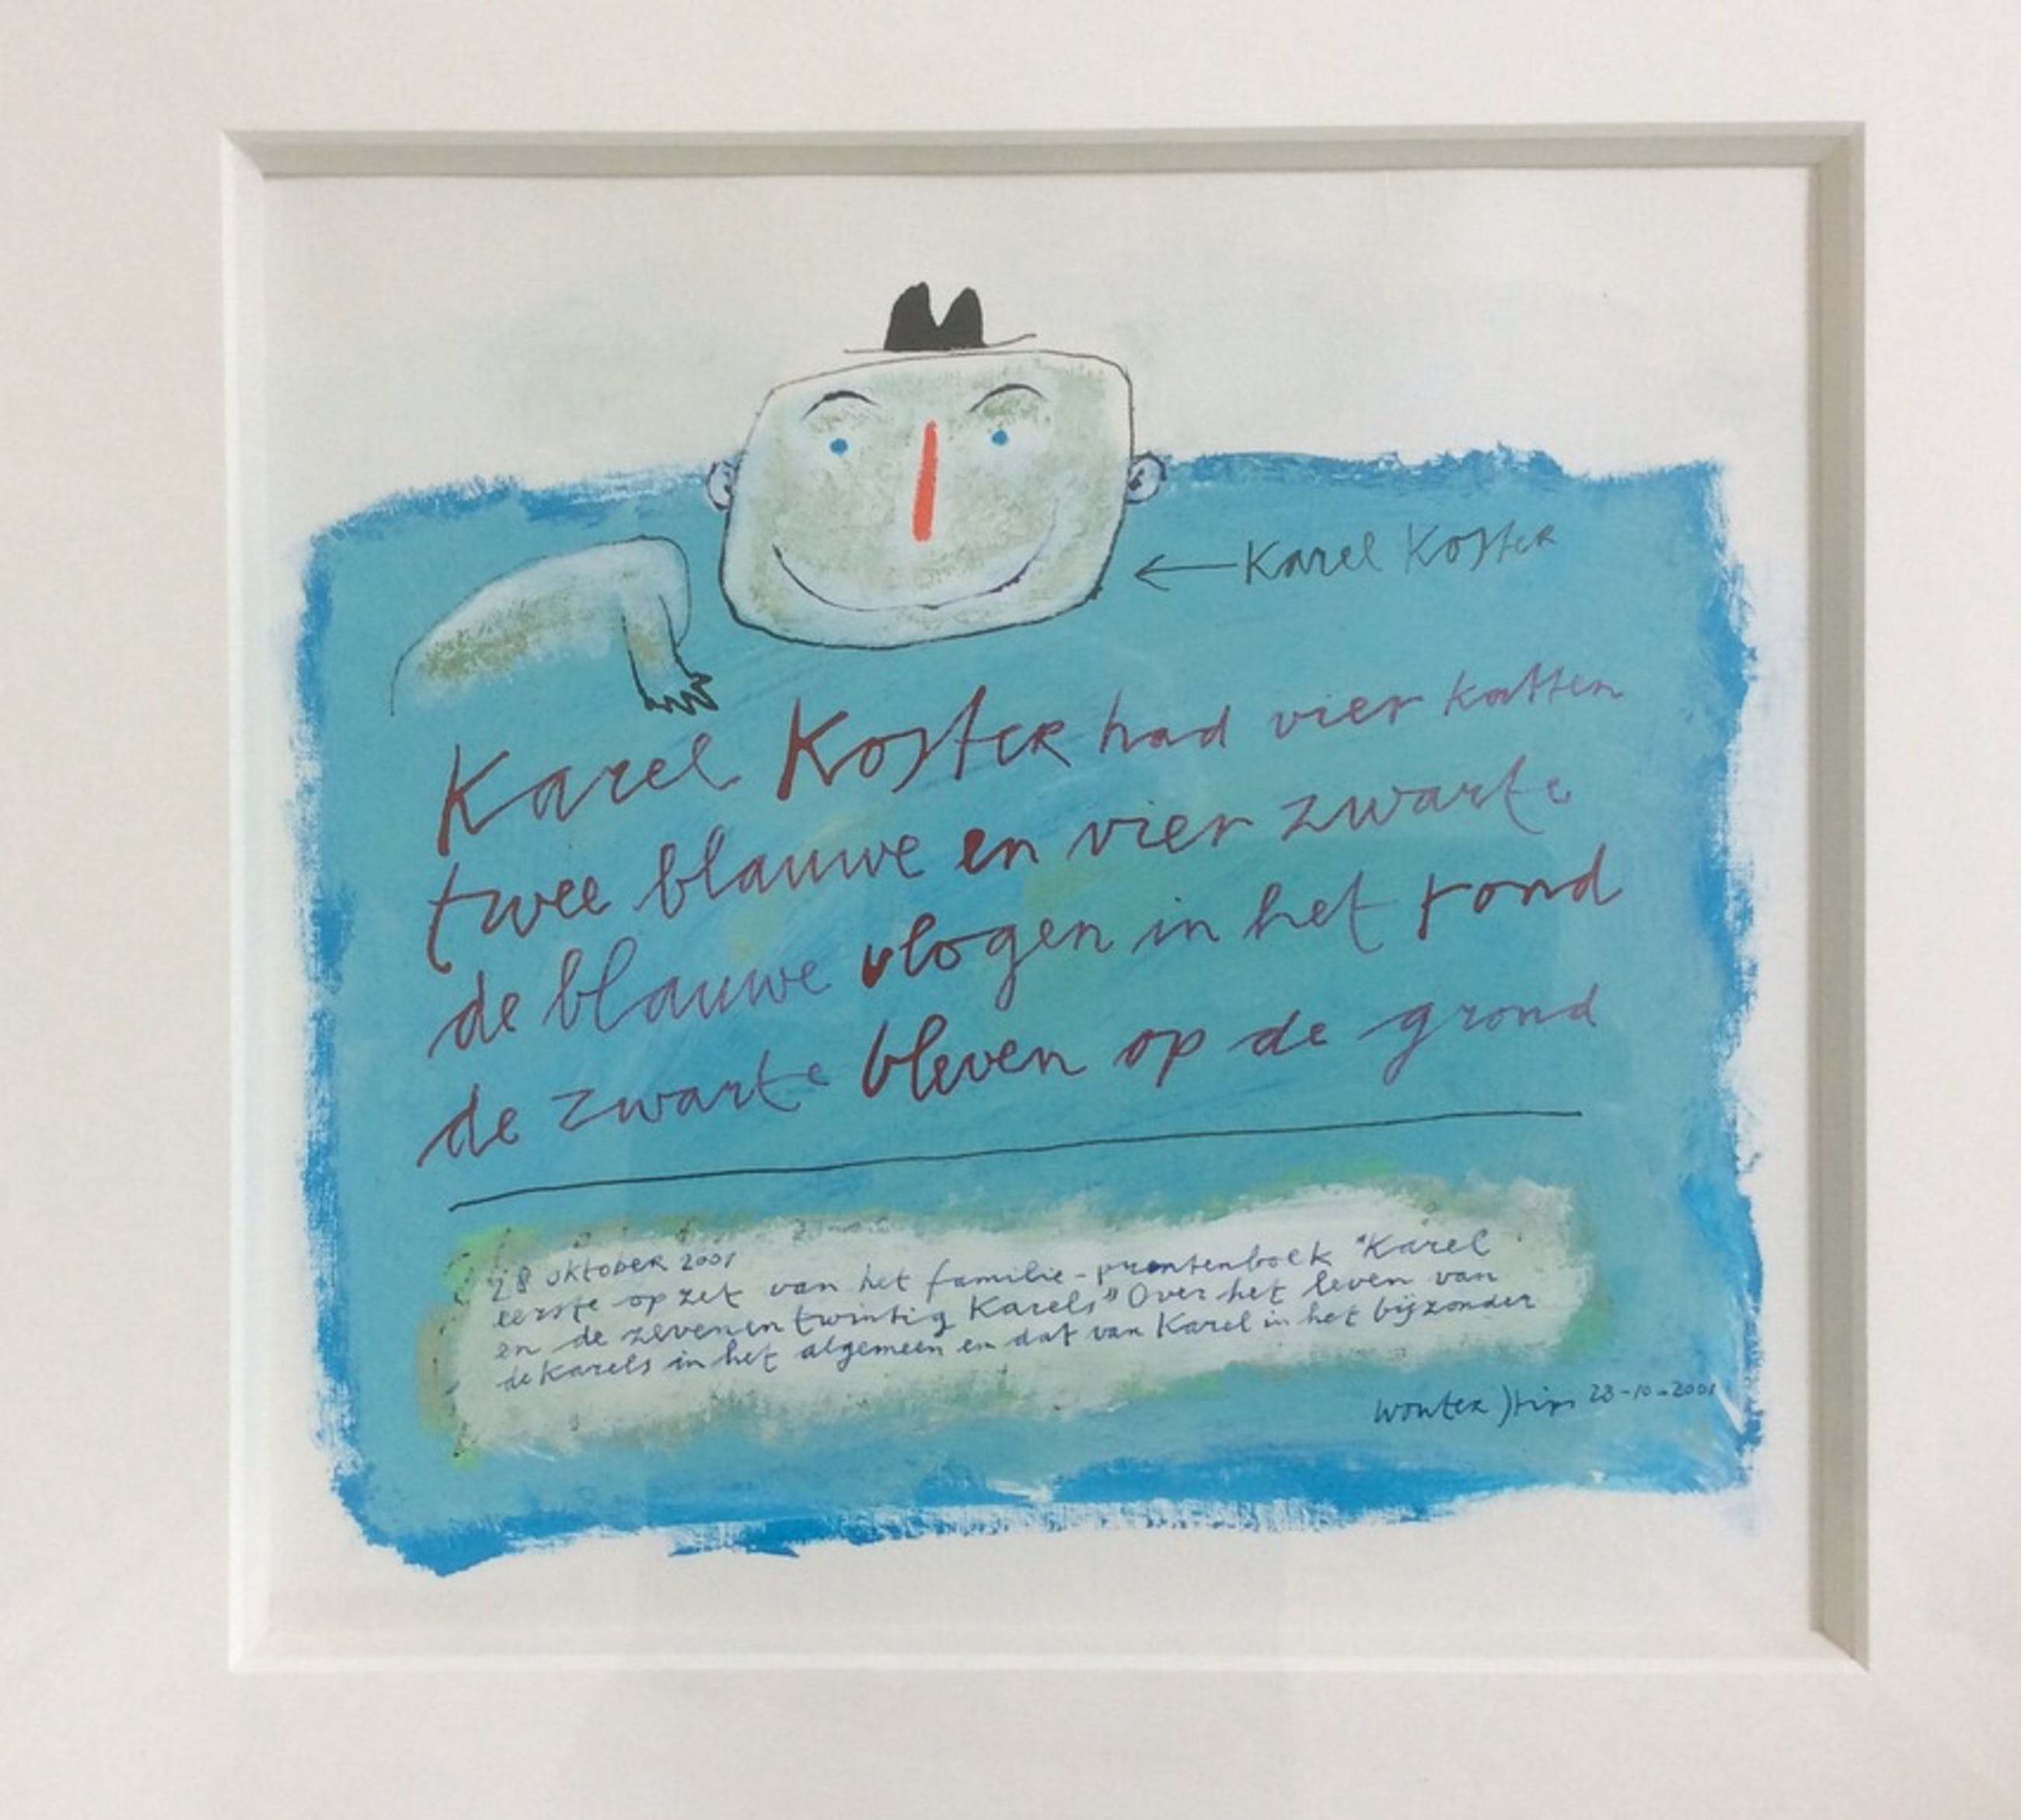 ← Karel Koster
Karel Koster had vier katten
twee blauwe en vier zwarte
de blauwe vlogen in het rond
de zwarte bleven op de grond
28 oktober 2001
eerste opzet van het familie-prentenboek "Karel
en de zevenentwintig Karels" Over het leven van
de Karels in het algemeen en dat van Karel in het bijzonder
wouter 28-10-2001